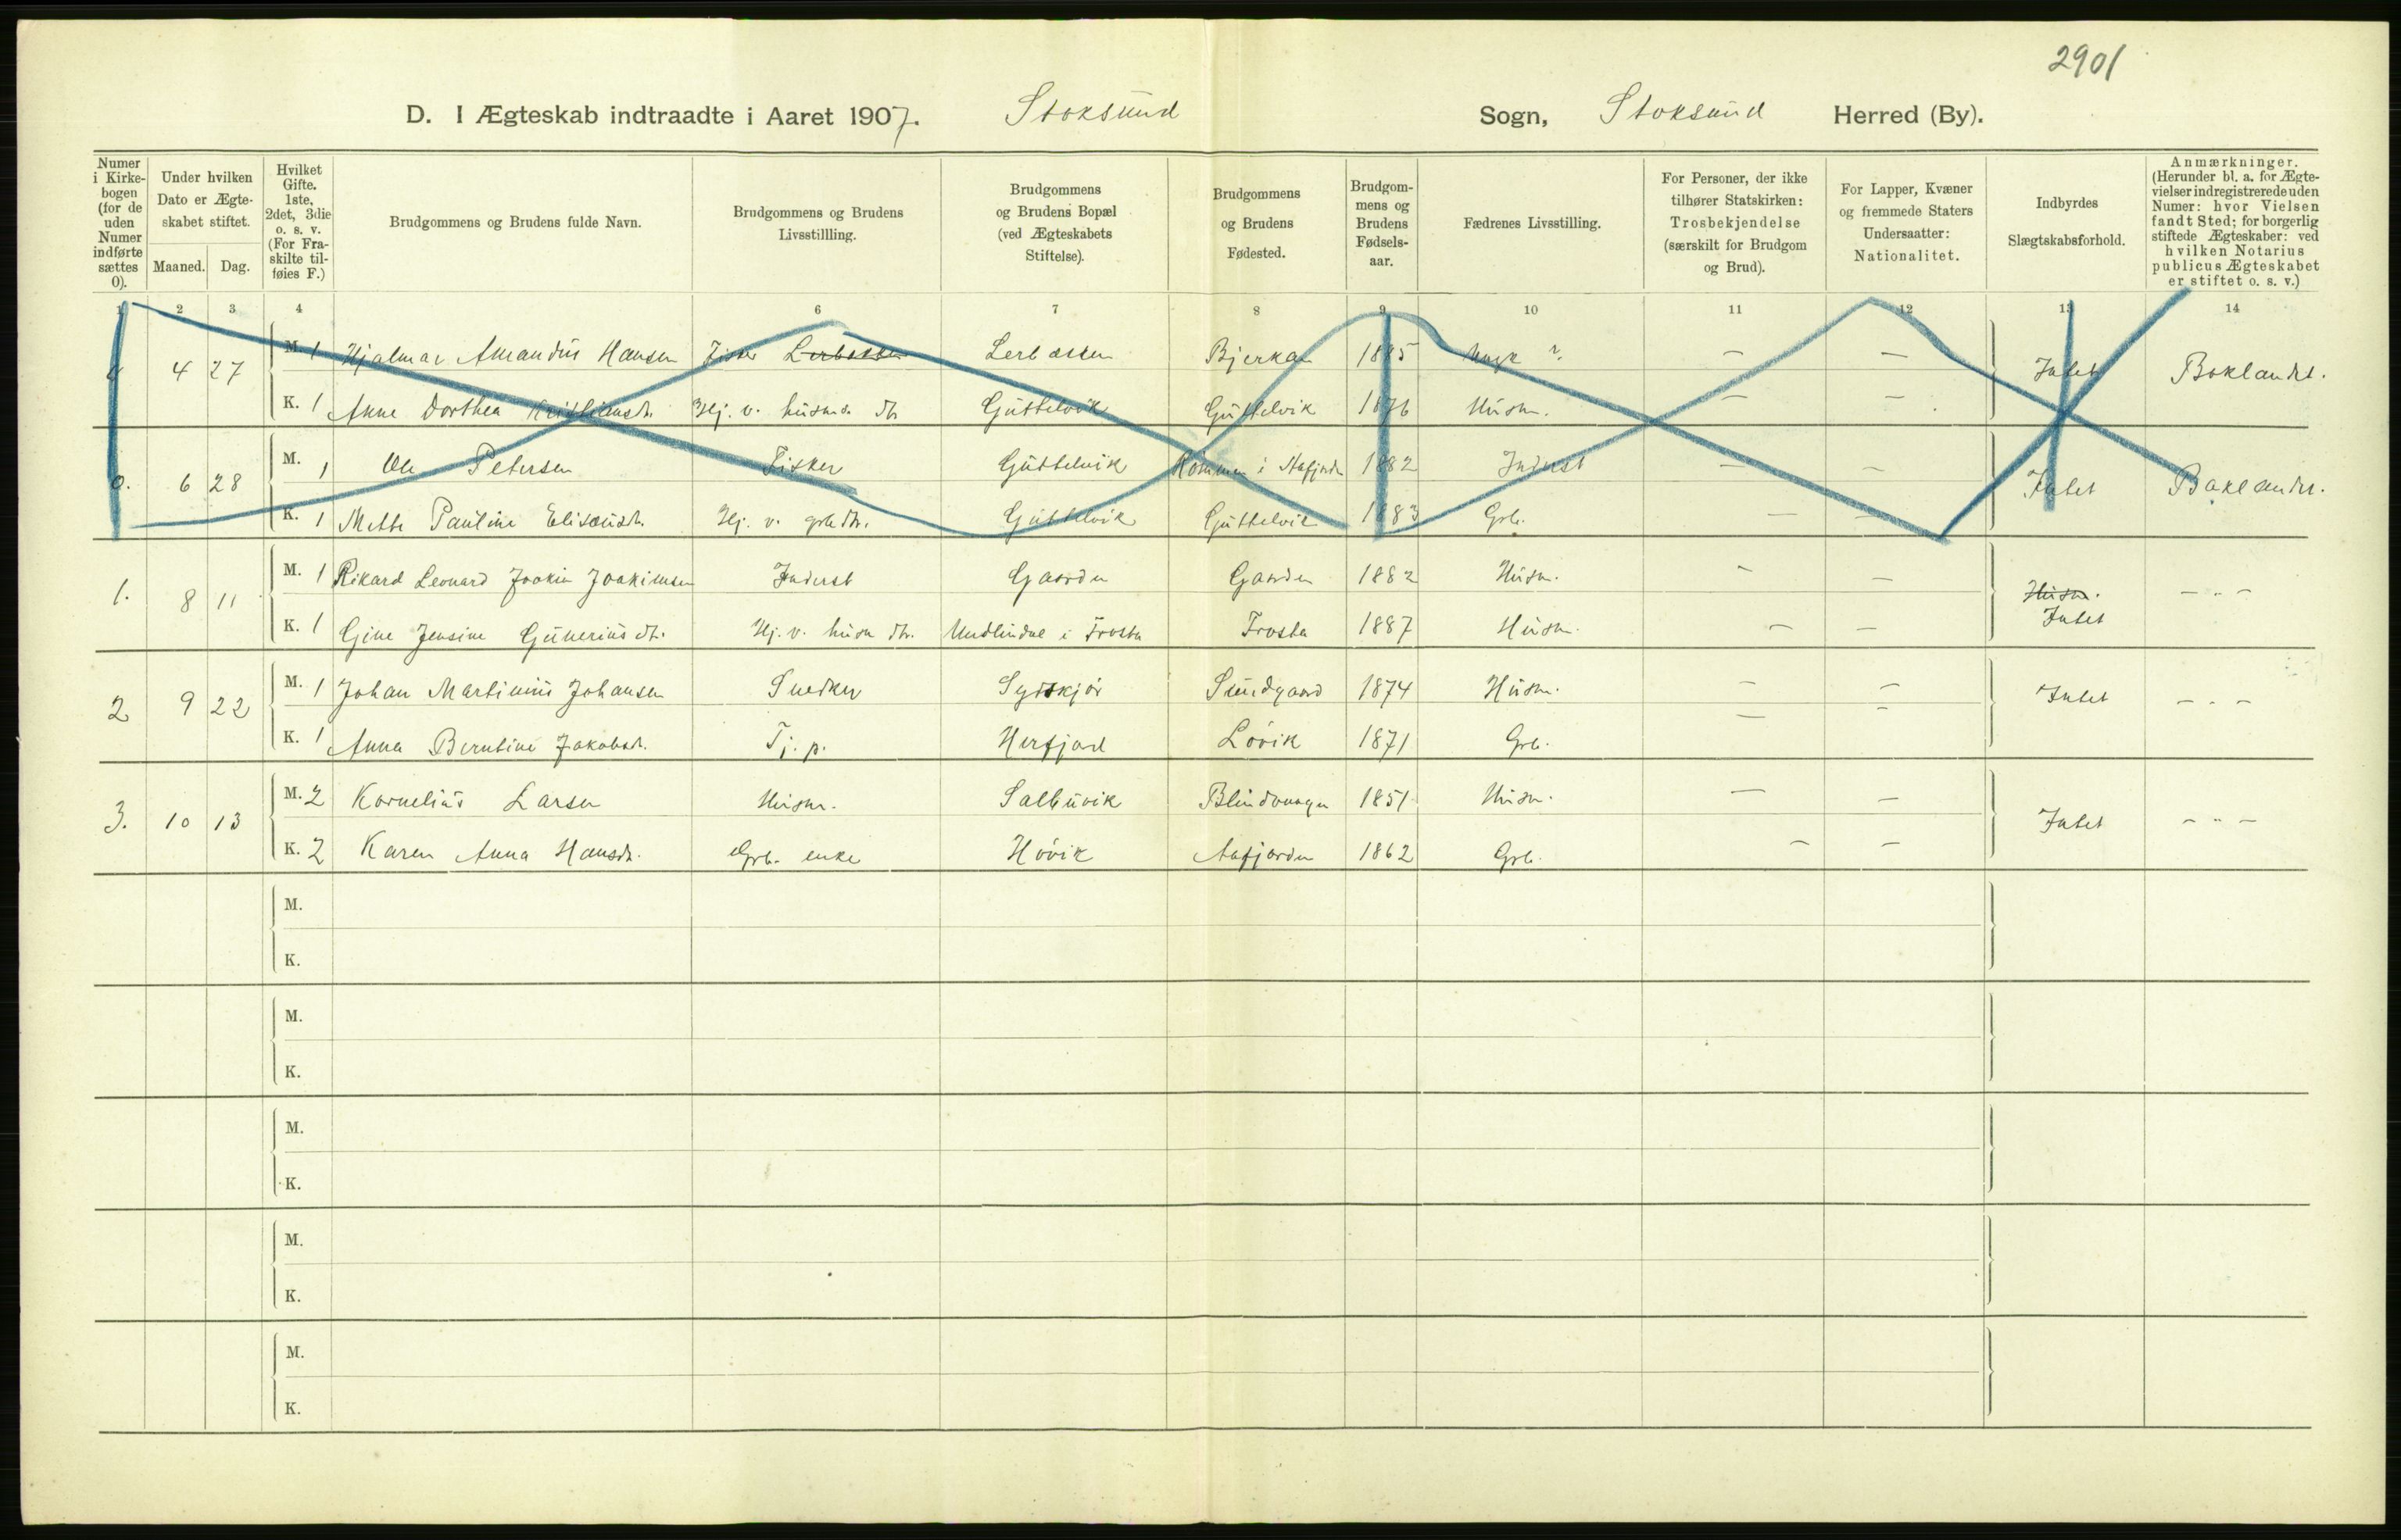 2901
D. I Ægteskab indtraadte i Aaret 1907. Stoksund Sogn, Stoksund Herred (By).
Numer i Kirkebogen (for de uden Numer indførte sættes 0).
Under hvilken Dato er Ægteskabet stiftet.
Maaned. Dag.
Hvilket Gifte. 1ste, 2det, 3die o. s. v. (For Fraskilte tilføies F.)
Brudgommens og Brudens fulde Navn.
Brudgommens og Brudens Livsstillling.
Brudgommens og Brudens Bopæl (ved Ægteskabets Stiftelse).
Brudgommens og Brudens Fødested.
Brudgommens og Brudens Fødselsaar.
Fædrenes Livsstilling.
For Personer, der ikke tilhører Statskirken: Trosbekjendelse (særskilt for Brudgom og Brud).
For Lapper, Kvæner og fremmede Staters Undersaatter: Nationalitet.
Indbyrdes Slægtskabsforhold.
Anmærkninger. (Herunder bl. a. for Ægtevielser indregistrerede uden Numer: hvor Vielsen fandt Sted; for borgerlig stiftede Ægteskaber: ved hvilken Notarius publicus Ægteskabet er stiftet o. s. v.)
1 2 3 4 6 7 8 9 10 11 12 13 14
4 27 M. 1 Hjalmar Amandus Hansen Fisker Lerbassen Lerbassen Bjerkan 1885 Ungk ? — — Intet Boklandet.
K. 1 Anne Dorthea Kristiansdt. Hj. v. husms. dt. Guttelvik Guttelvik 1876 Husm. — —
0. 6 28 M. 1 Ole Petersen Fisker Guttelvik i Aafjorden 1882 Inderst — — Intet Baklandet.
K. 1 Mette Pauline Eliseusdt. Hj. v. grb. dt. Guttelvik Guttelvik 1883 Grb. — —
1. 8 11 M. 1 Rikard Leonard Joakim Joakimsen Inderst Gaarden Gaarden 1882 Husm. — — Husm. Intet — " —
K. 1 Gine Jensine Guneriusdt. Hj. v. husm dt. i Frosta Frosta 1887 Husm. — —
2 9 22 M. 1 Johan Martinius Johansen Snedker Sydskjør Sundgaard 1874 Husm. — — Intet — " —
K. 1 Anna Berntine Jakobsdt. Tj. p. Herfjord Lövik 1871 Grb. — —
3. 10 13 M. 2 Kornelius Larsen Husm. Salbuvik Blindvaagen 1851 Husm. — — Intet — " —
K. 2 Karen Anna Hansdt. Grb. enke Hövik Aafjorden 1862 Grb. — —
M.
K.
M.
K.
M.
K.
M.
K.
M.
K.